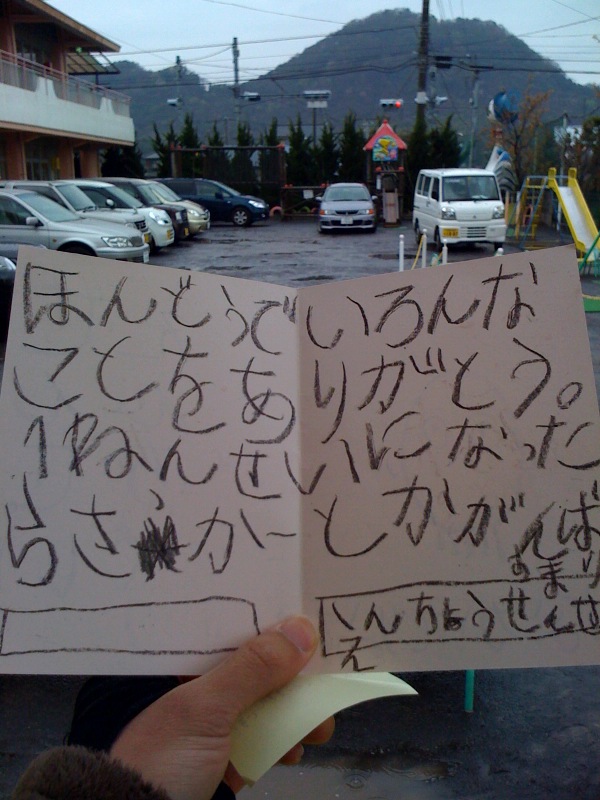 ほんどうで いろんな
ことをありがとう。
1ねんせいになった
らさっかーとかがんば
ります
えんちょうせんせ